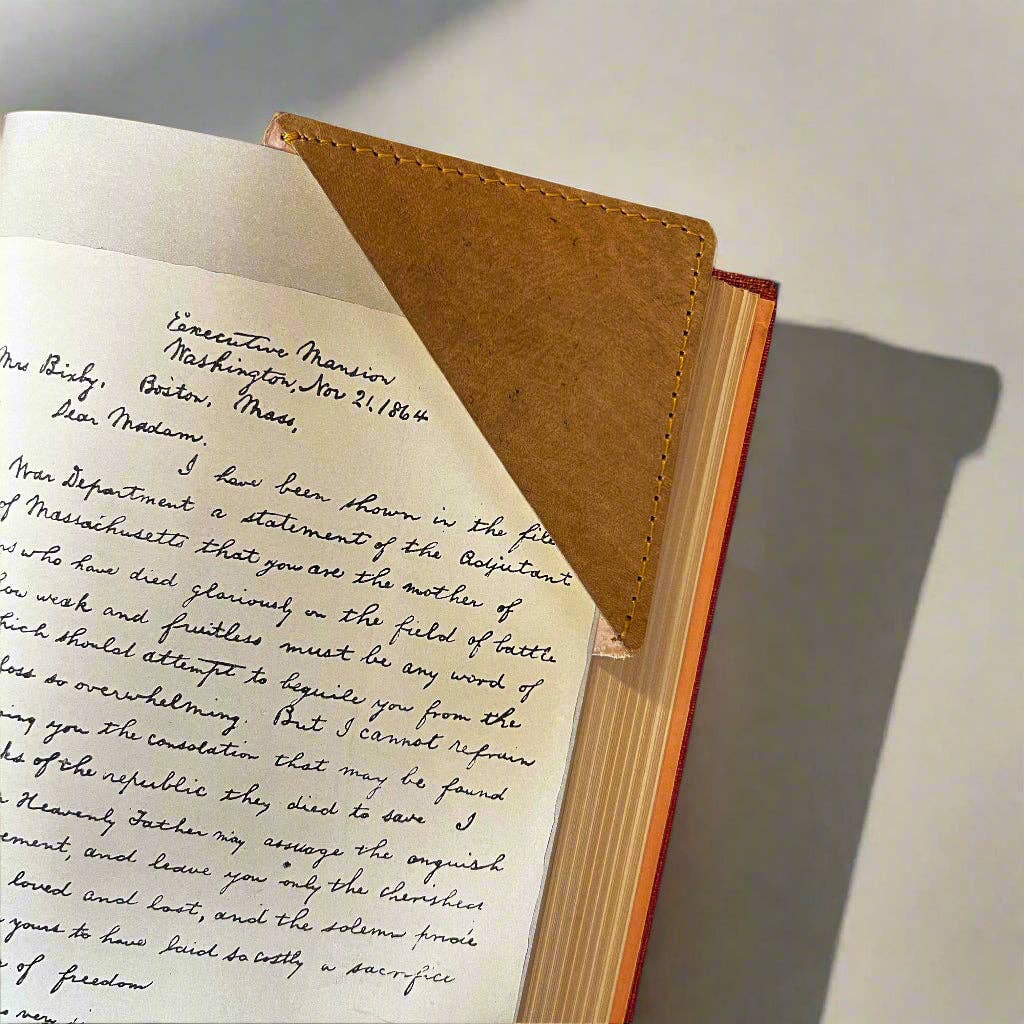 Executive Mansion
Washington, Nov 21, 1864
Mrs Bixby, Boston, Mass,
Dear Madam.
I have been shown in the file
War Department a statement of the Adjutant
of Massachusetts that you are the mother of
who have died gloriously on the field of battle
how weak and fruitless must be any word of
which should attempt to beguile you from the
loss so overwhelming. But I cannot refrain
you the consolation that may be found
of the republic they died to save I
Heavenly Father may assuage the anguish
and leave you only the cherished
loved and lost, and the solemn pride
yours to have laid so costly a sacrifice
of freedom
very